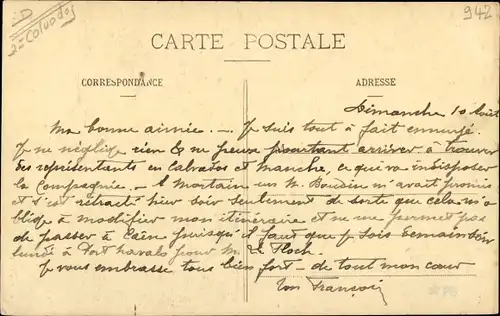 :D
2= Calvados
942
CARTE POSTALE
CORRESPONDANCE
ADRESSE
Dimanche 10 Août
Ma bonne aimée. - Je suis tout à fait ennuyé.
Je ne néglige rien & ne peux pourtant arriver à trouver
des représentants en Calvados et Manche, ce qui va indisposer
la Compagnie. - A Mortain un M. Boudin m'avait promis
et s'est rétracté hier soir seulement de sorte que cela m'o
blige à modifier mon itinéraire et ne me permet pas
de passer à Caen puisqu'il faut que je sois semaine
à pour M. Le Floch.
Je vous embrasse tous bien fort - de tout mon cœur
ton François